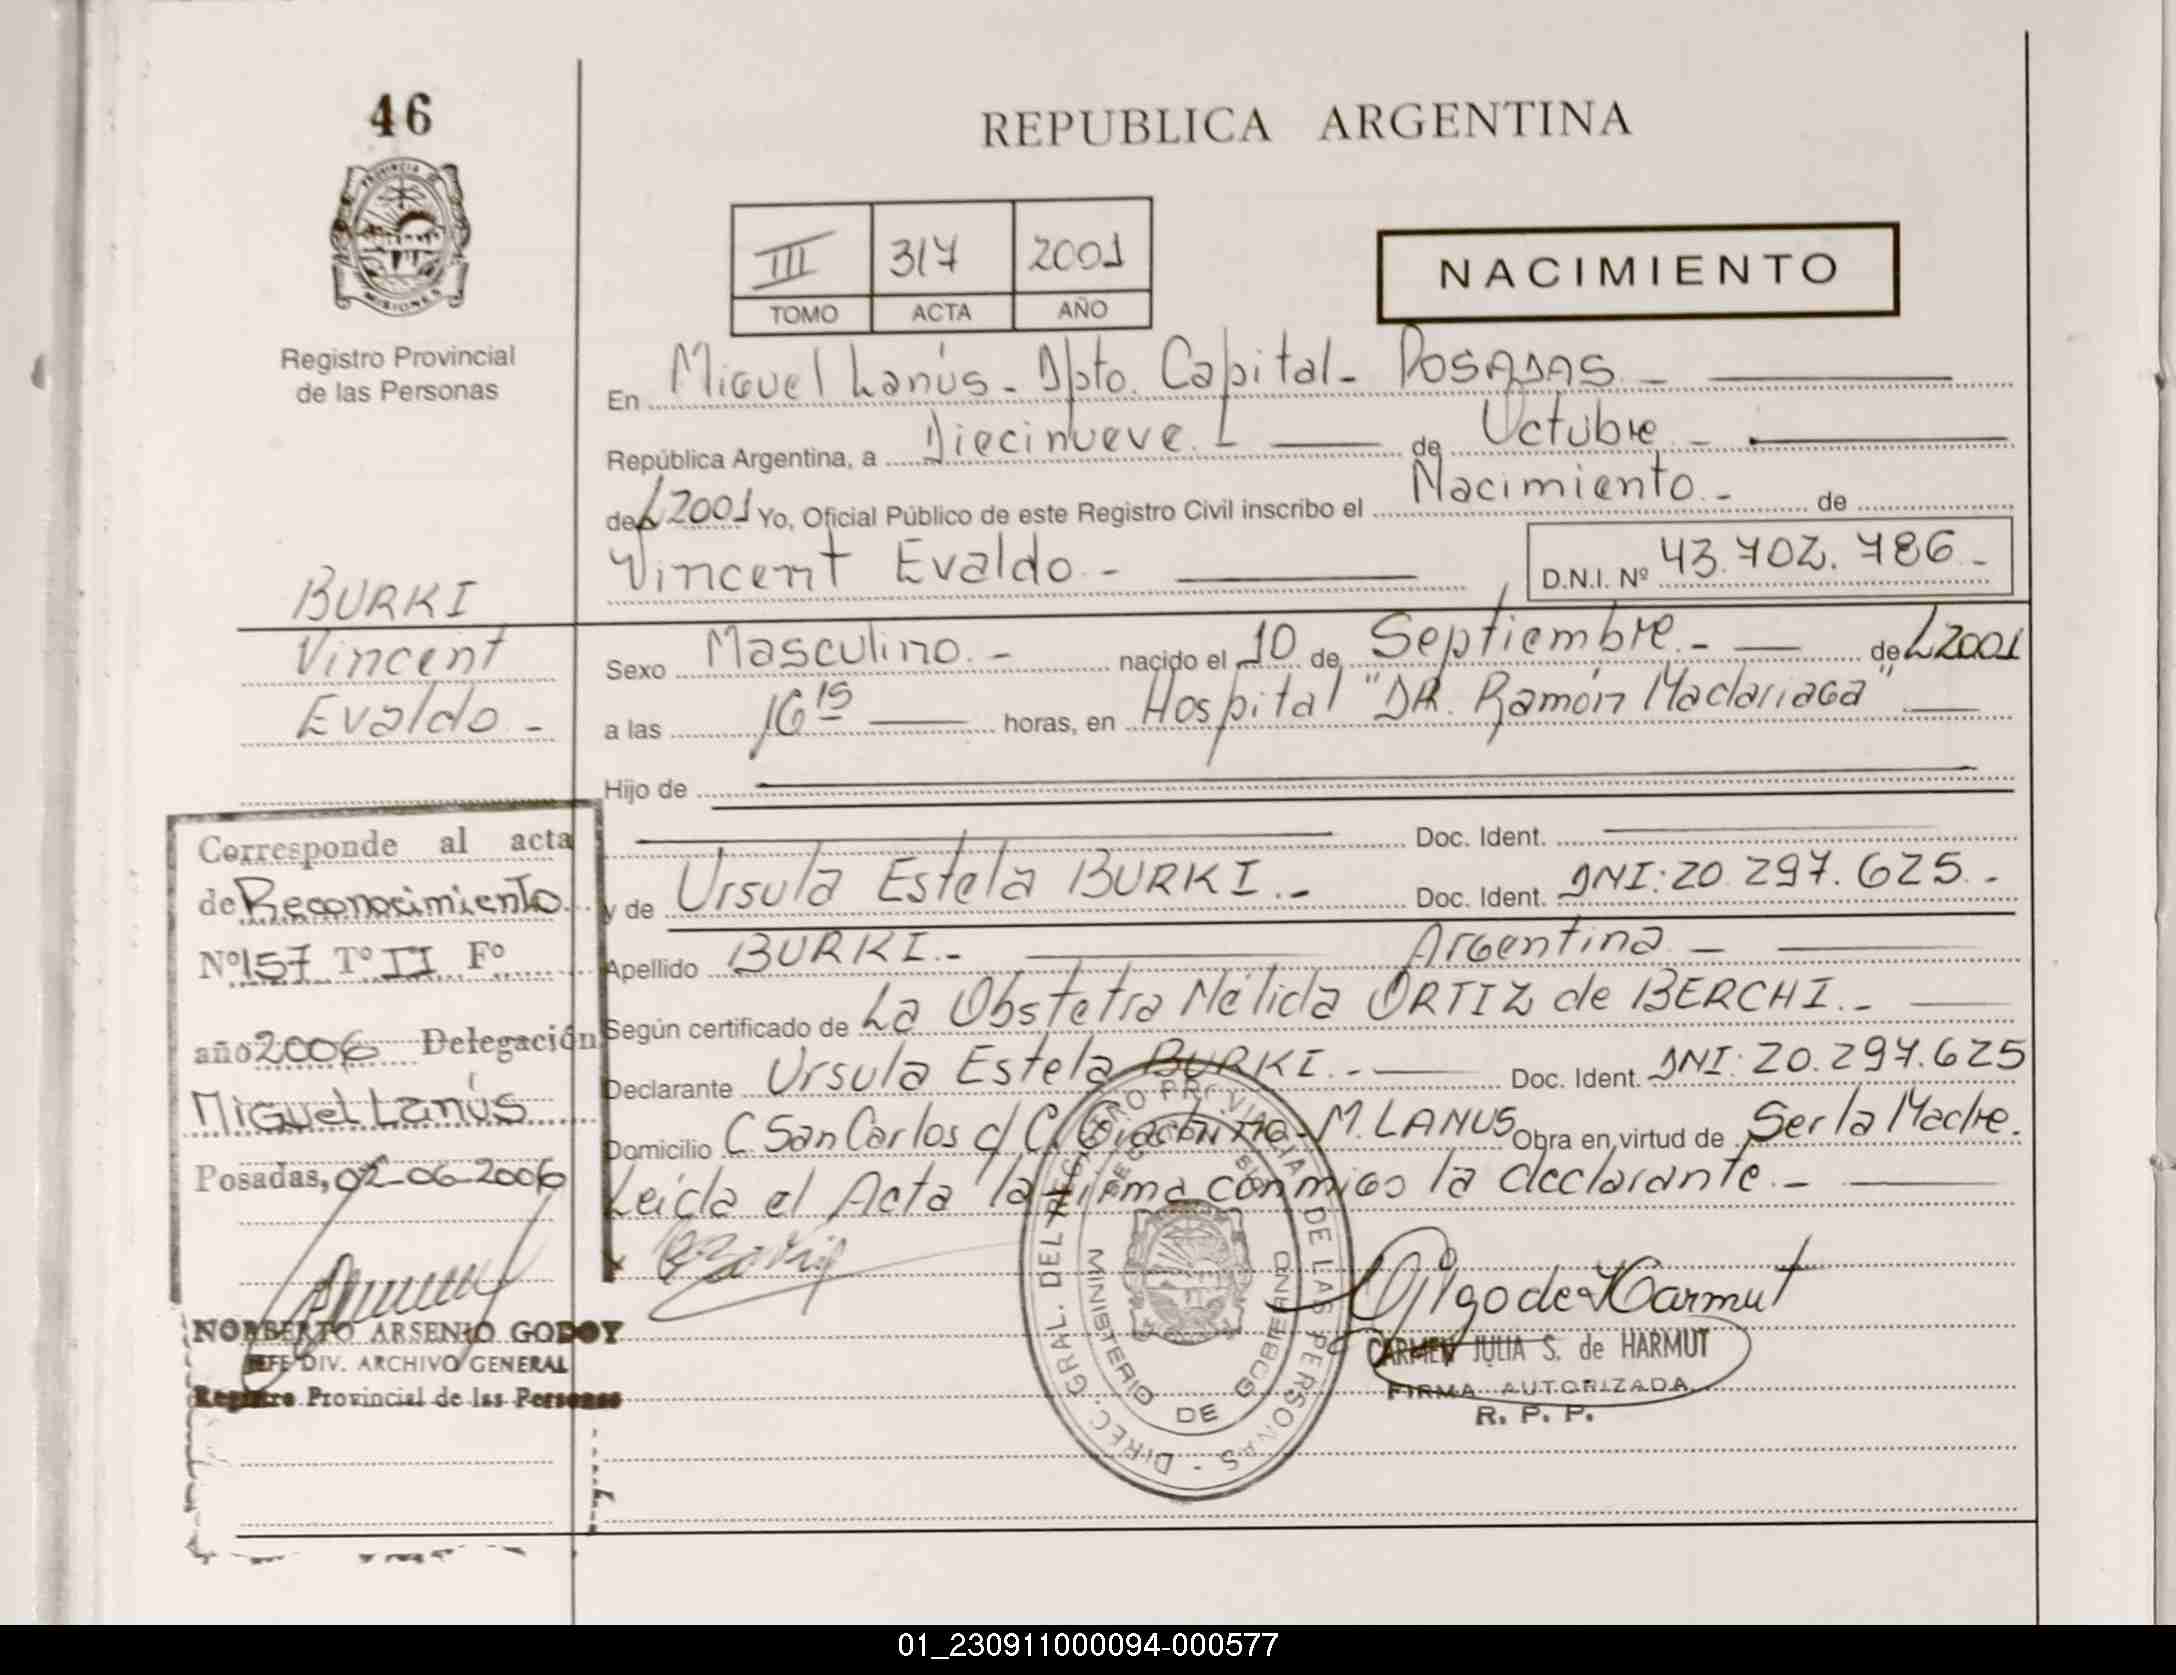 46
PROVINCIA DE
MISIONES
Registro Provincial
de las Personas
REPUBLICA ARGENTINA
III 317 2001
TOMO ACTA AÑO
NACIMIENTO
En Miguel Lanús - Dpto. Capital - POSADAS -
República Argentina, a Diecinueve de Octubre -
de 2001 Yo, Oficial Público de este Registro Civil inscribo el Nacimiento - de
Vincent Evaldo - D.N.I. Nº 43.702.786 -
BURKI
Vincent
Evaldo -
Sexo Masculino - nacido el 10 de Septiembre - de 2001
a las 16 15 horas, en Hospital "DR. Ramón Madariaga"
Hijo de
Doc. Ident.
y de Ursula Estela BURKI.- Doc. Ident. DNI: 20.297.625.-
Apellido BURKI.- Argentina -
Según certificado de La Obstetra Nélida ORTIZ de BERCHI.-
Declarante Ursula Estela BURKI.- Doc. Ident. DNI: 20.297.625
Domicilio C. San Carlos c/ C. M. LANUS Obra en virtud de Ser la Madre.
Leída el Acta la firma conmigo la declarante.-
Corresponde al acta
de Reconocimiento
Nº 157 Tº II Fº
año 2006 Delegación
Miguel Lanús
Posadas, 02-06-2006
NORBERTO ARSENIO GODOY
JEFE DIV. ARCHIVO GENERAL
Registro Provincial de las Personas
DIREC. GRAL. DEL REGISTRO PROVINCIAL DE LAS PERSONAS -
MINISTERIO DE GOBIERNO
CARMEN JULIA S. de HARMUT
FIRMA AUTORIZADA
R. P. P.
01_230911000094-000577